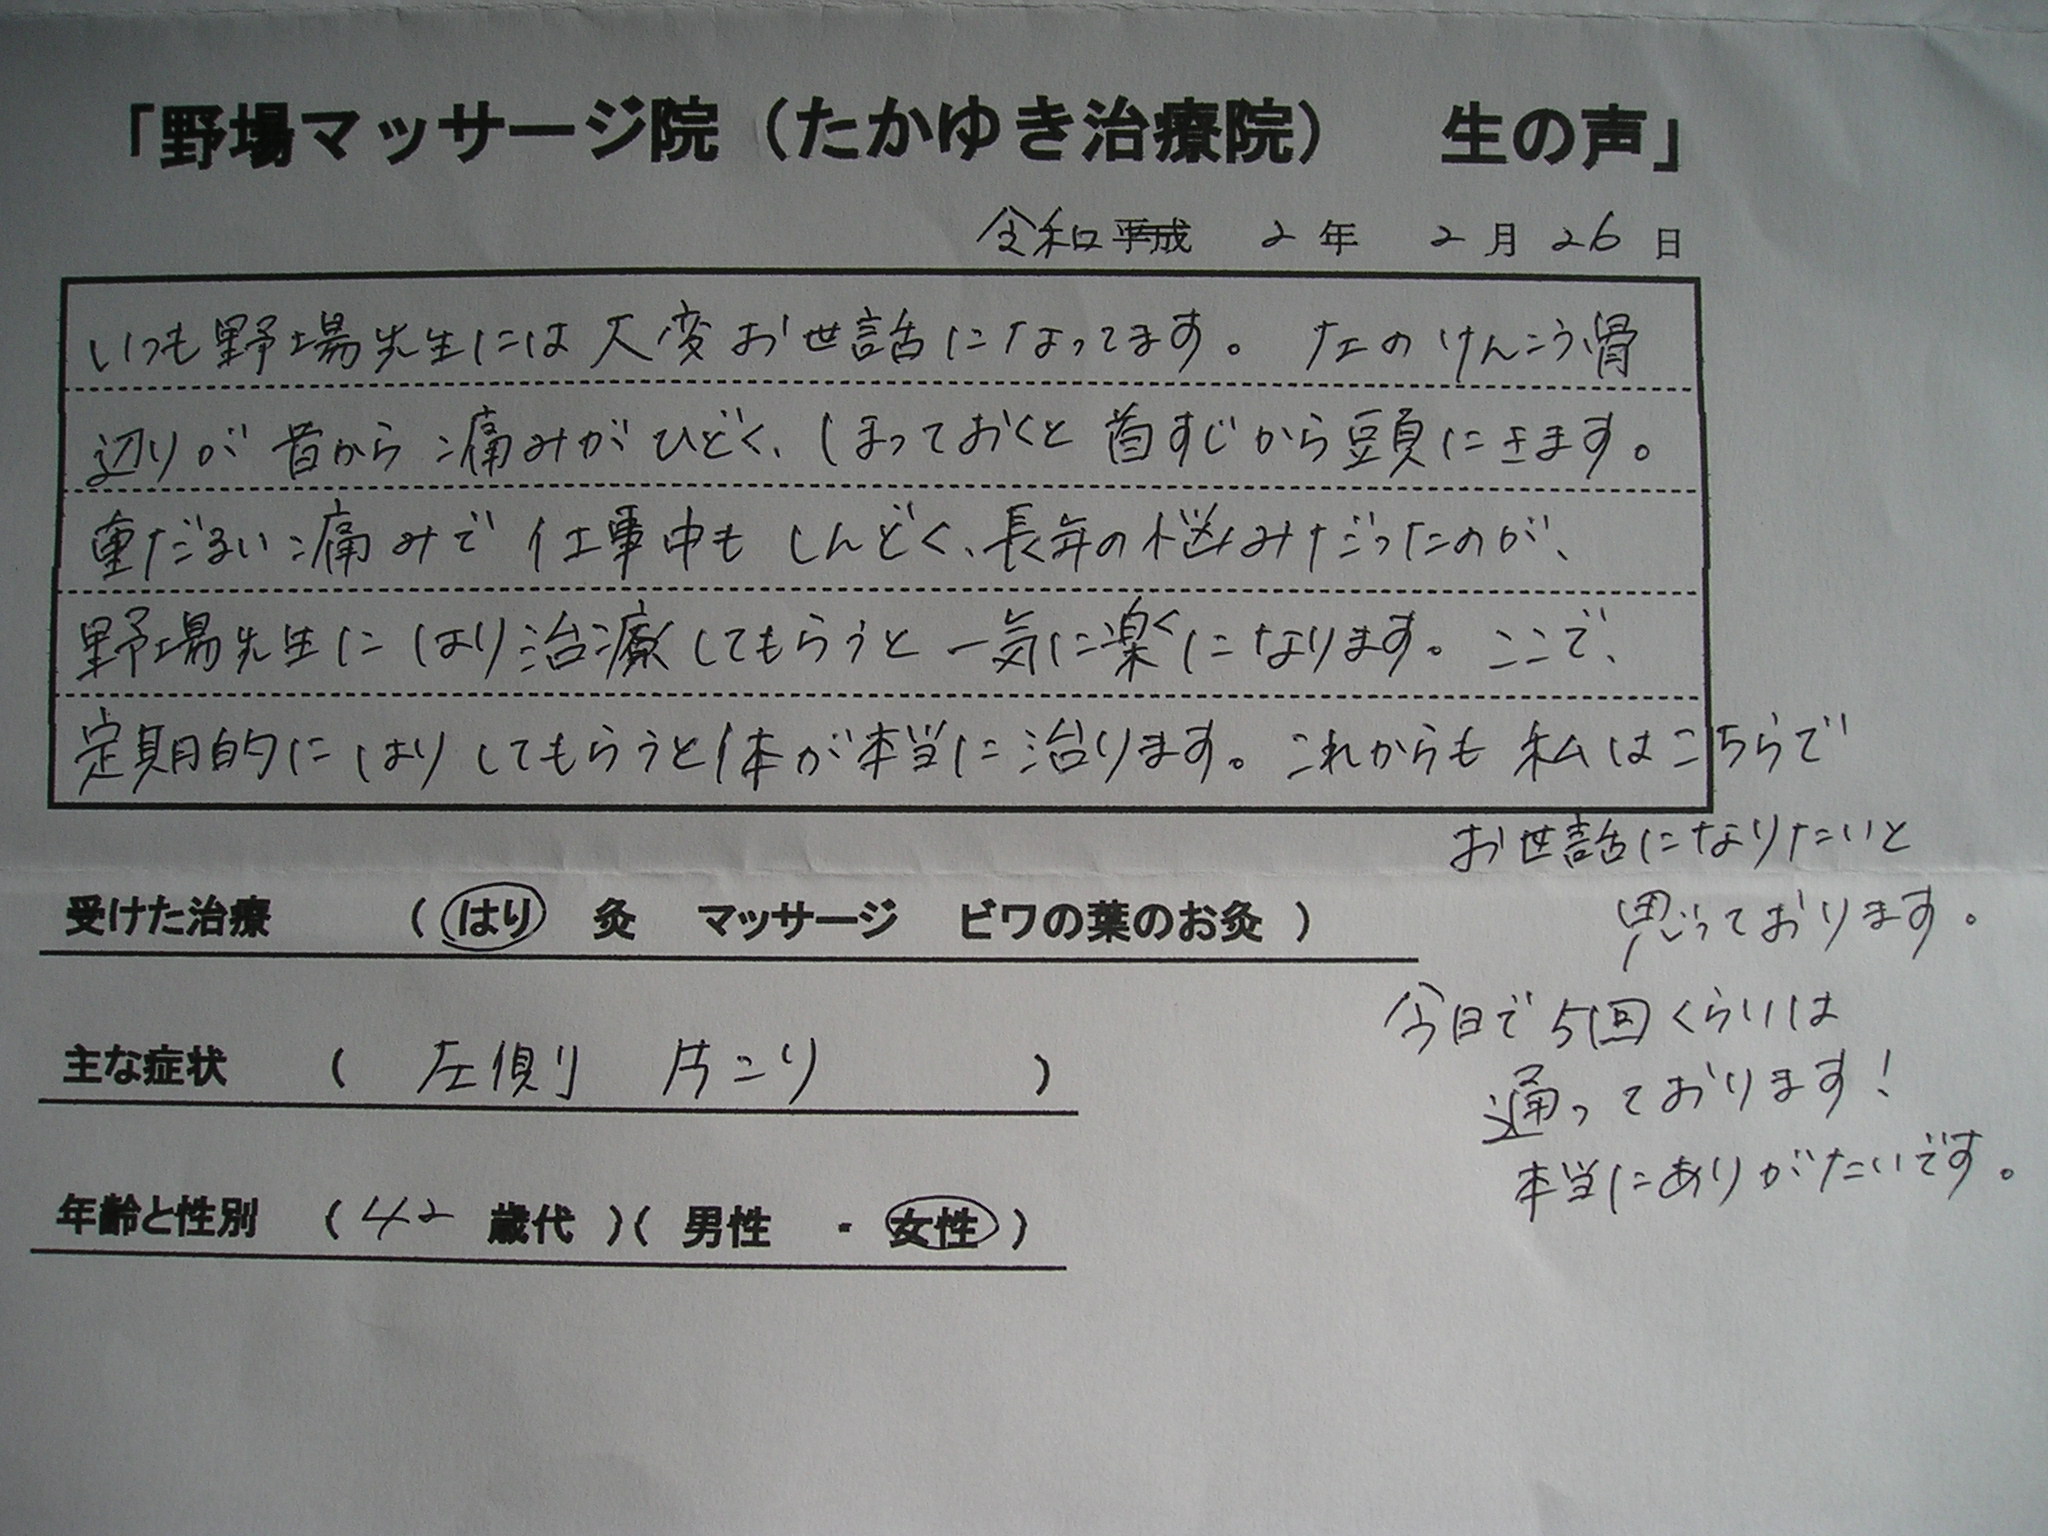 「野場マッサージ院（たかゆき治療院）　生の声」
令和 平成 2年 2月26日
いつも野場先生には大変お世話になってます。左のけんこう骨
辺りが昔から痛みがひどく、しまっておくと首すじから頭にきます。
重だるい痛みで仕事中もしんどく、長年の悩みだったのが、
野場先生にはり治療してもらうと一気に楽になります。ここで、
定期的にはりしてもらうと体が本当に治ります。これからも私はこちらで
お世話になりたいと
思っております。
今日で5回くらいは
通っております！
本当にありがたいです。
受けた治療　（ はり　灸　マッサージ　ビワの葉のお灸 ）
主な症状　（ 左側　片こり ）
年齢と性別　（ 42 歳代 ）（ 男性　・　女性 ）